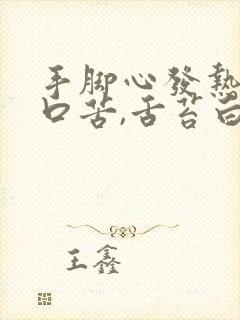 手脚心發熱
口苦,舌苔白
王鑫